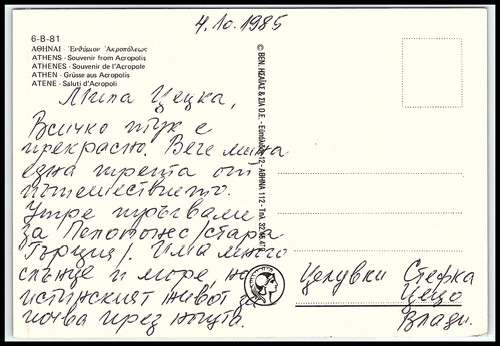 4.10.1985
6-B-81
ΑΘΗΝΑΙ - Ἐνθύμιον Ἀκροπόλεως
ATHENS - Souvenir from Acropolis
ATHENES - Souvenir de l'Acropole
ATHEN - Grüsse aus Acropolis
ATENE - Saluti d'Acropoli
Мила Цецка,
Всичко тук е
прекрасно. Вече мина
една трета от
пътешествието.
Утре тръгваме
за Пелопонес /стара
Гърция/. Има много
слънце и море, но
истинският живот за-
почва през нощта.
© ΒΕΝ. ΗΣΑΪΑΣ & ΣΙΑ Ο.Ε. - 12 - ΑΘΗΝΑ 112 - Τηλ.
Целувки Стефка
Цецо
Влади.